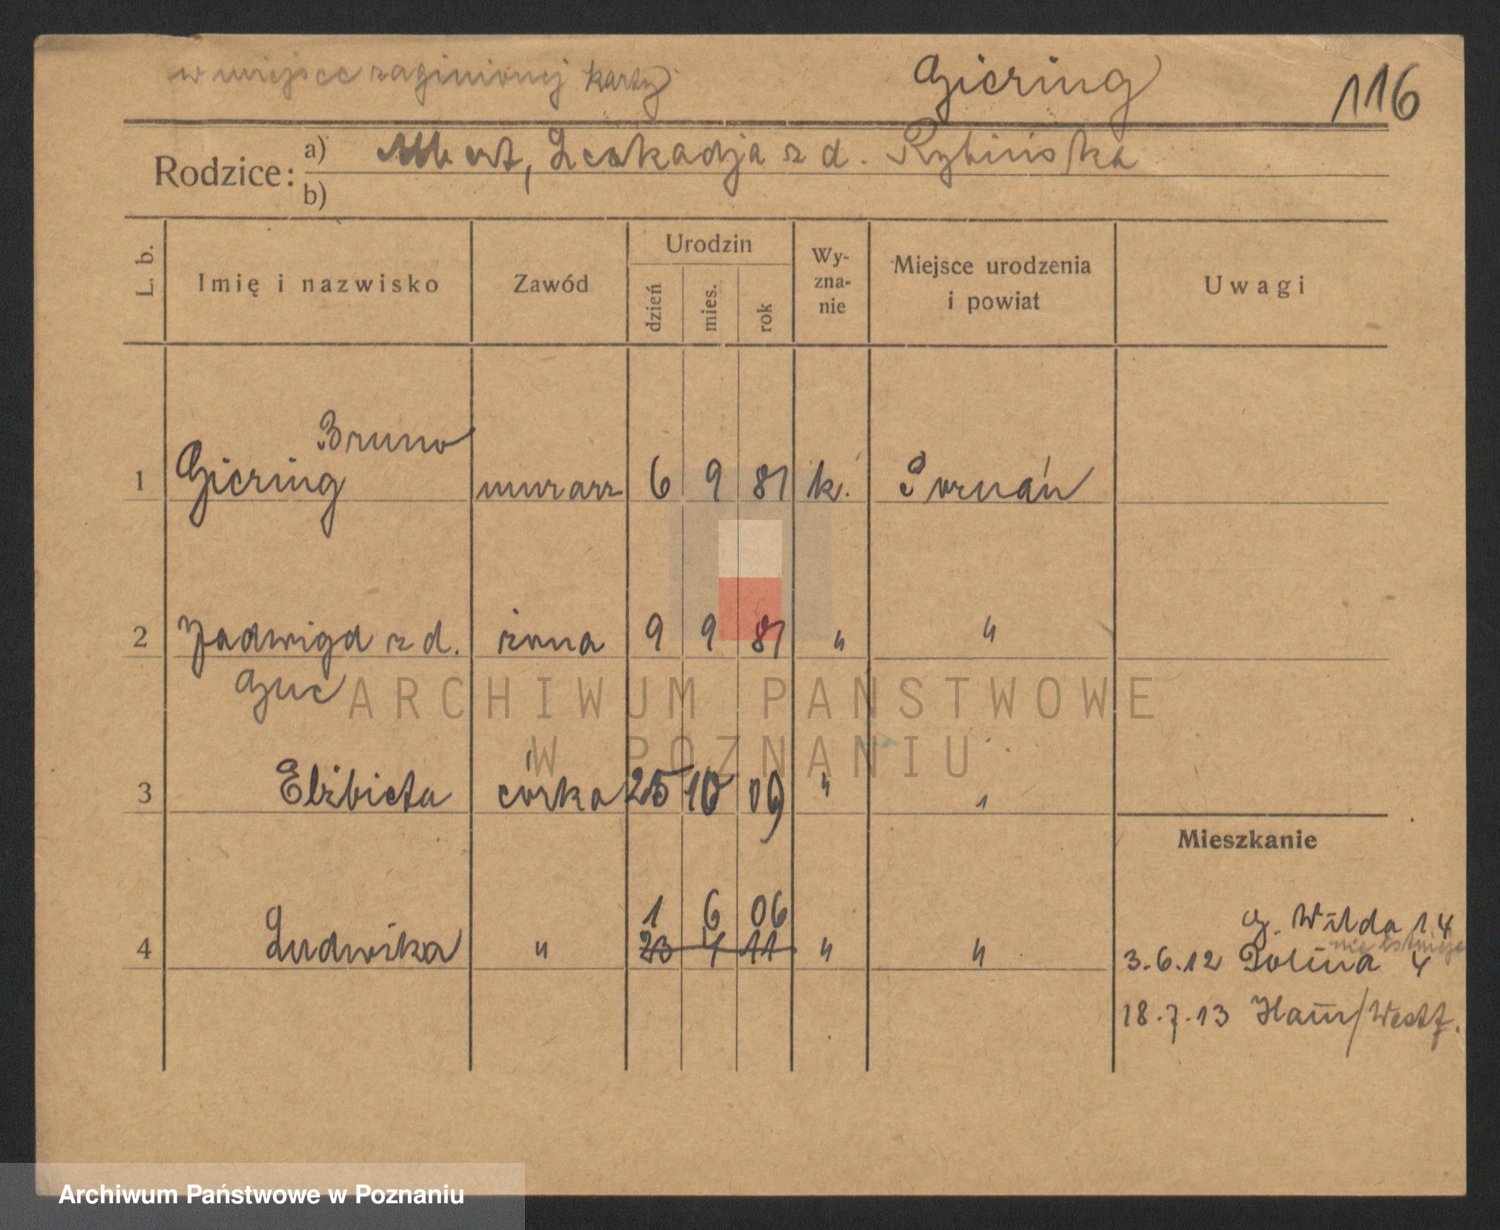 w miejsce zaginionej karty
Giering
116
Rodzice: a) Albert, Leokadja z d. Rybińska
b)
L. b.
Imię i nazwisko
Zawód
Urodzin
dzień
mies.
rok
Wy-
zna-
nie
Miejsce urodzenia
i powiat
Uwagi
Bruno
1 Giering murarz 6 9 81 k. Poznań
2 Jadwiga z d. żona 9 9 81 " "
Guc
ARCHIWUM PAŃSTWOWE
W POZNANIU
3 Elżbieta córka 25 10 09 " "
Mieszkanie
1 6 06
4 Ludwika " 23 4 11 " "
G. Wilda 14
nie istnieje
3.6.12 Dolina 4
18.7.13 Ham̄/Westf.
Archiwum Państwowe w Poznaniu